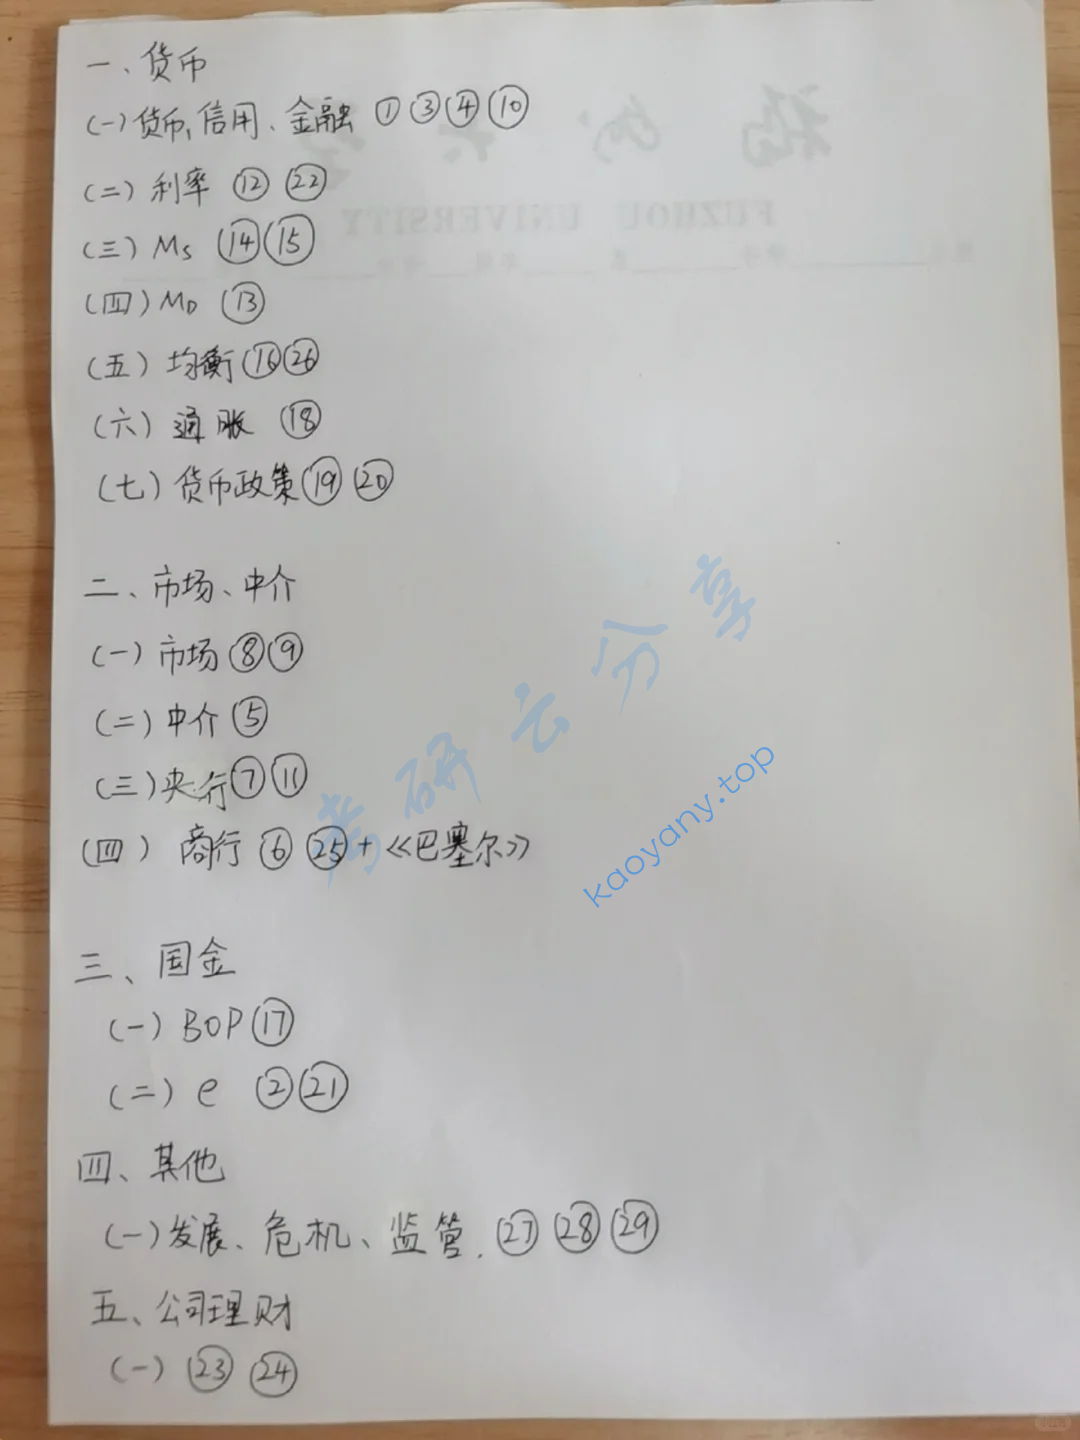 一、货币
(一)货币、信用、金融 ① ③ ④ ⑩
(二)利率 ⑫ ㉒
(三)Ms ⑭ ⑮
(四)MD ⑬
(五)均衡 ⑯ ㉖
(六)通胀 ⑱
(七)货币政策 ⑲ ⑳
二、市场、中介
(一)市场 ⑧ ⑨
(二)中介 ⑤
(三)央行 ⑦ ⑪
(四)商行 ⑥ ㉕+《巴塞尔》
三、国金
(一)BOP ⑰
(二)e ② ㉑
四、其他
(一)发展、危机、监管. ㉗ ㉘ ㉙
五、公司理财
(一) ㉓ ㉔
考研云分享
kaoyany.top
FUZHOU UNIVERSITY